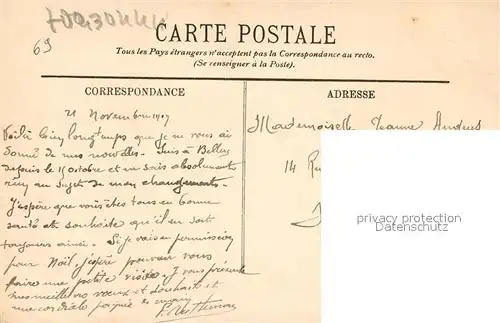 69
CARTE POSTALE
Tous les Pays étrangers n'acceptent pas la Correspondance au recto.
(Se renseigner à la Poste).
CORRESPONDANCE
ADRESSE
21 Novembre 1907
Voilà bien longtemps que je ne vous ai
donné de mes nouvelles. Suis à Belley
depuis le 15 octobre et ne sais absolument
rien au sujet de mon changement.
J'espère que vous êtes tous en bonne
santé et souhaite qu'il en soit
toujours ainsi. Si je vais en permission
pour Noël, j'espère pouvoir vous
faire une petite visite. Je vous présente
mes meilleurs vœux et souhaits et
une cordiale poignée de main
Mademoiselle Jeanne
14 Ru
privacy protection
Datenschutz